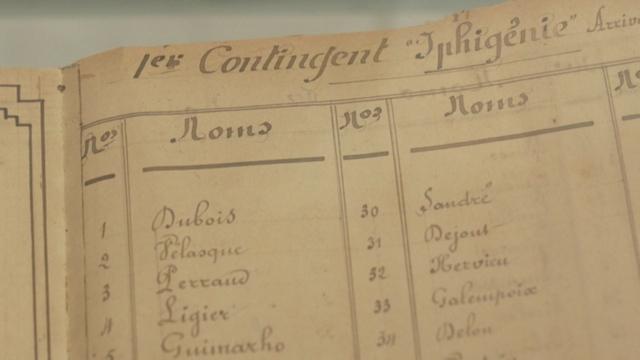 1er Contingent "Iphigénie" Arriv
Nos Noms Nos Noms No
1 Dubois 30 Sandré
2 Vélasque 31 Dejout
3 Perraud 32 Hervieu
4 Ligier 33 Galempoix
5 Guimarho 34 Delon